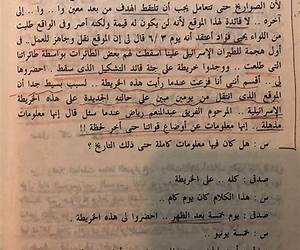 لأن الصواريخ حتى تتعامل يجب أن تلتقط الهدف من بعد معين وا .. وا .. إلى
آخره .. لا فائدة لهذا الموقع لأنه لن يكون له قيمة ولكنه أصر وفي الواقع طلبت
من اللواء يحيى فؤاد أعتقد أنه يوم ٦/٣ قال لي إن الموقع نقل وجاهز للعمل . في
أول هجمة للطيران الإسرائيلي علينا أسقطت لهم بعض الطائرات بواسطة طائراتنا
التي طلعت .. ووجدوا خريطة على جثة قائد التشكيل الذي سقط . احضروها
لي .. أقسم أنني أنا فزعت عندما رأيت هذه الخريطة .. لسبب بسيط جدا أن
الموقع الذي انتقل من يومين مبين على حالته الجديدة على هذه الخريطة
الإسرائيلية .. المرحوم الفريق عبدالمنعم رياض عندما رآها سئل قال إنها معلومات
مذهلة .. إنها معلومات عن أوضاع قواتنا حتى آخر لحظة !!
س : هل كان فيها معلومات كاملة حتى ذلك التاريخ ؟
صدقى : كله .. على الخريطة .
س : هذا الكلام كان يوم كام ..
صدقى : يوم خمسة بعد الظهر .. احضروا لى هذه الخريطة .
س : خمسة يونيو ..